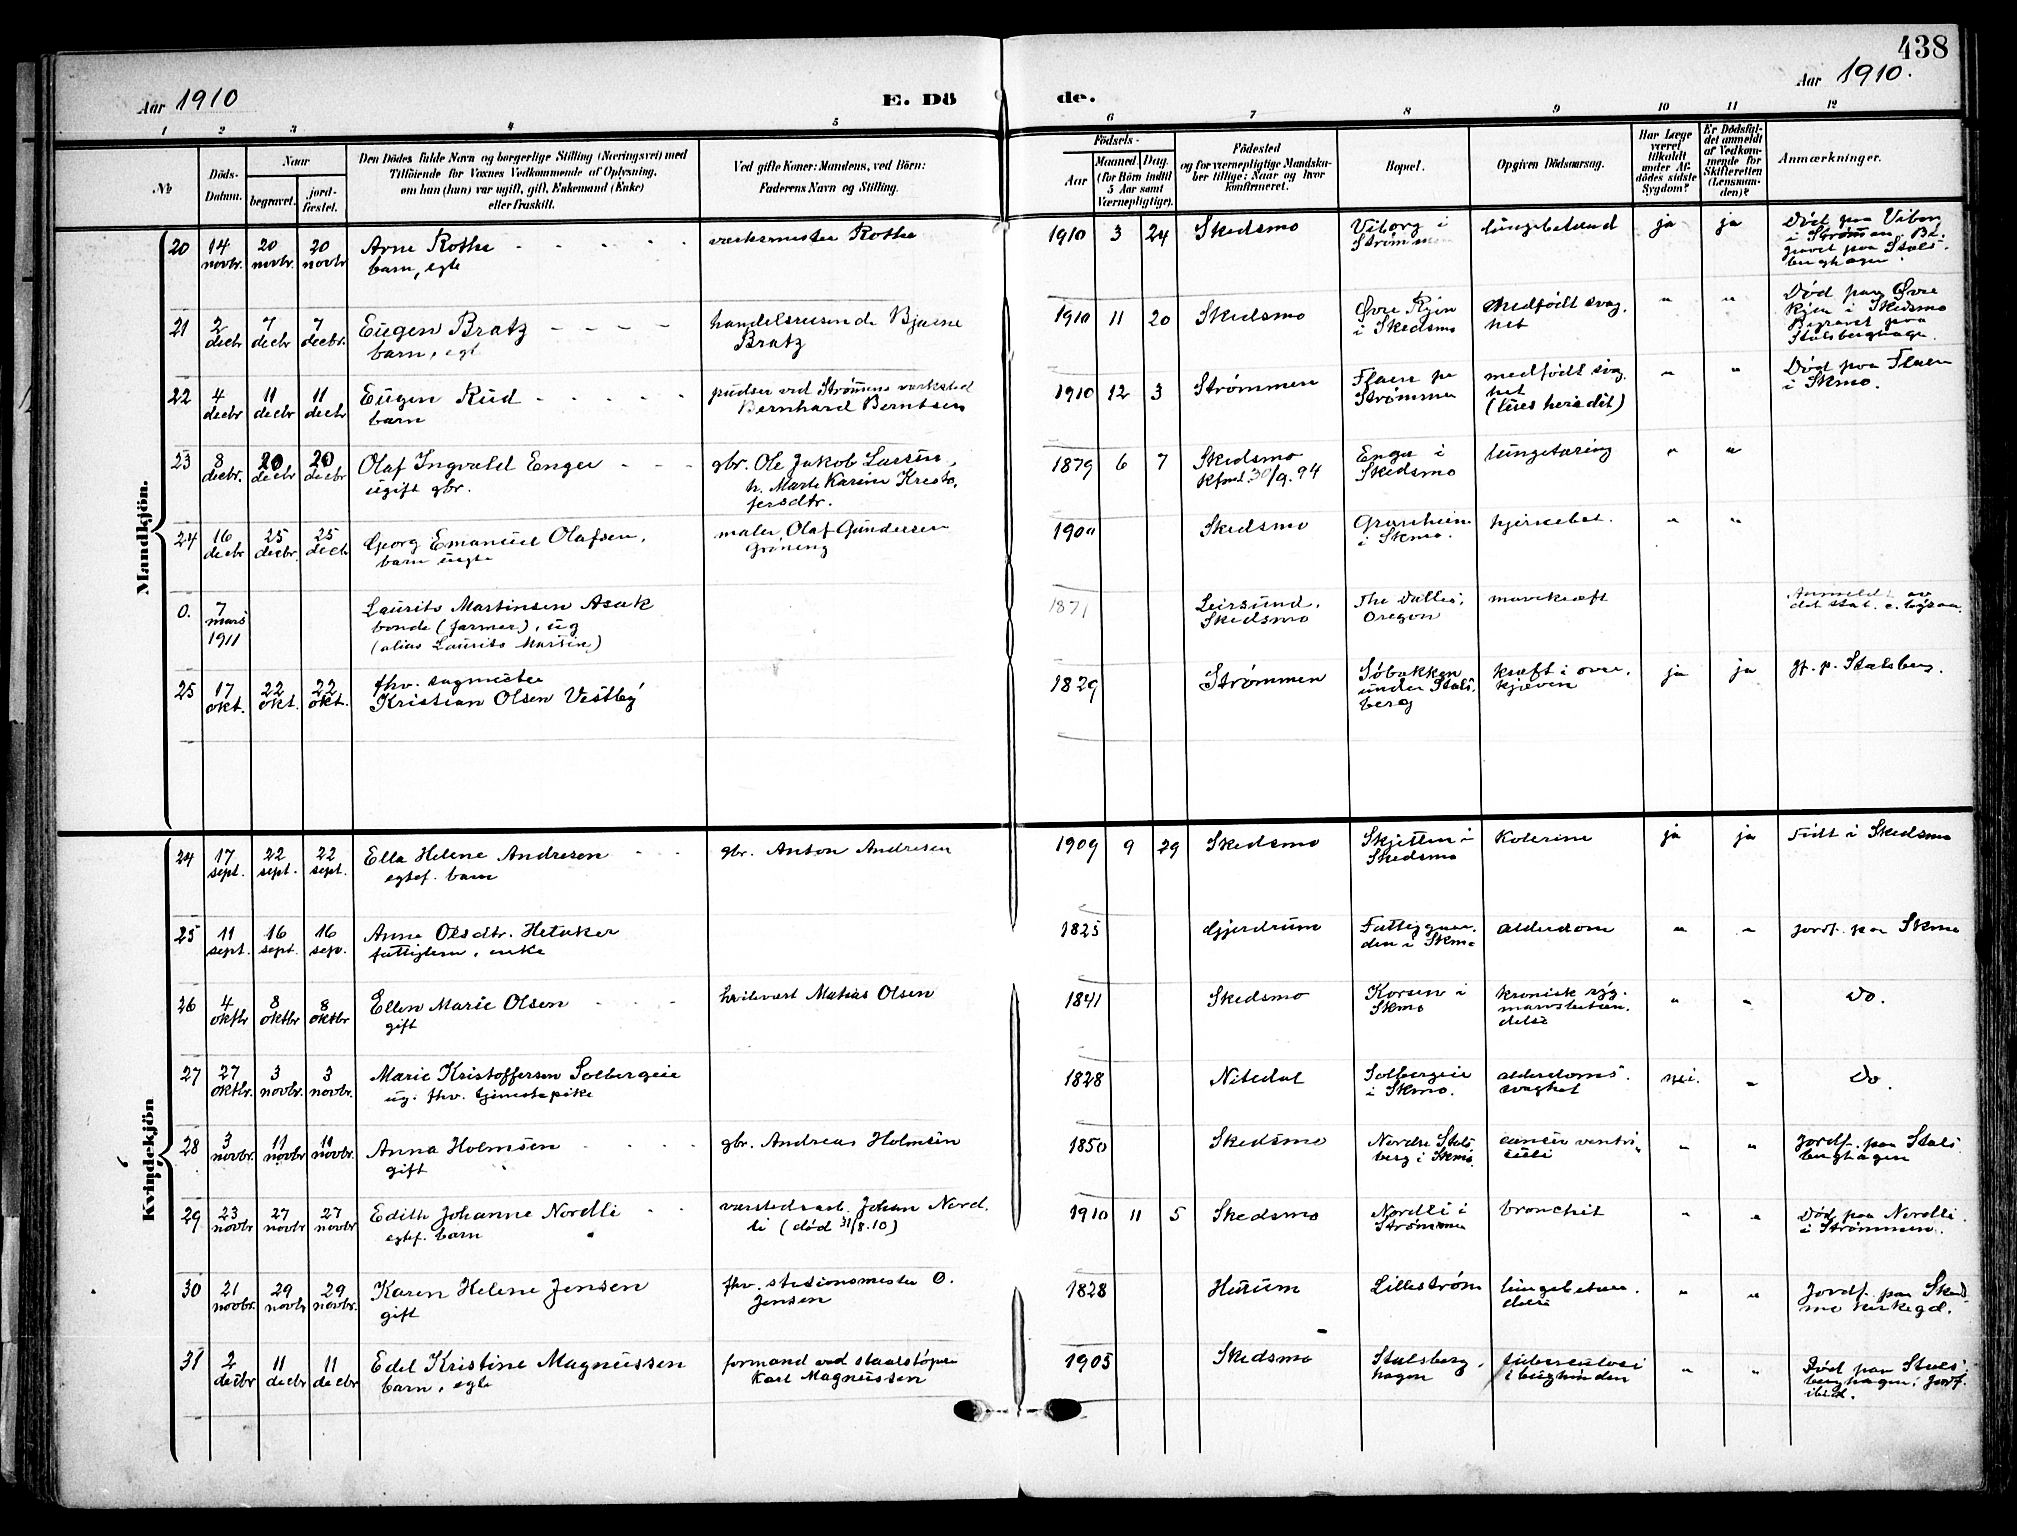 438
Aar 1910
E. Dö de.
Aar 1910.
1 2 3 4 5 6 7 8 9 10 11 12
№
Döds-Datum.
Naar
begravet.
jord-fæstet.
Den Dödes fulde Navn og borgerlige Stilling (Næringsvei) med
Tilföiende for Voxnes Vedkommende af Oplysning,
om han (hun) var ugift, gift, Enkemand (Enke)
eller fraskilt.
Ved gifte Koner: Mandens, ved Börn:
Faderens Navn og Stilling.
Födsels-
Aar
Maaned. Dag.
(for Börn indtil
5 Aar samt
Værnepligtige).
Födested
og for værnepligtige Mandska-
ber tillige: Naar og hvor
konfirmeret.
Bopæl.
Opgiven Dödsaarsag.
Har Læge
været
tilkaldt
under Af-
dödes sidste
Sygdom?
Er Dödsfal-
det anmeldt
af Vedkom-
mende for
Skifteretten
(Lensman-
den)?
Anmærkninger.
Mandkjön.
20 14 novbr. 20 novbr. 20 novbr. Arne Rothe barn, egte
værksmester Rothe
1910 3 24 Skedsmo Viborg i Strømmen lungebetænd ja ja Død paa Viborg i Strømmen. Begravet paa Stalsberghagen.
21 2 decbr 7 decbr 7 decbr. Eugen Bratz barn, egt
handelsreisende Bjarne Bratz
1910 11 20 Skedsmo Øvre Rijen i Skedsmo medfødt svaghet " " Død paa Øvre Rijen i Skedsmo Begravet paa Stalsberghage.
22 4 decbr 11 decbr 11 decbr Eugen Rud barn
pudser ved Strømmens værksted Bernhard Berntsen
1910 12 3 Strømmen Flaen pr Strømmen medfødt svaghet (lues heredit) " " Død paa Flaen i Skmo.
23 8 decbr. 20 decbr 20 decbr Olaf Ingvald Enger ugift gbr.
gbr. Ole Jakob Larsen, h. Marte Karine Kristoffersdtr.
1879 6 7 Skedsmo Kfmd 30/9. 94 Enger i Skedsmo lungetæring " "
24 16 decbr 25 decbr. 25 decb Georg Emanuel Olafsen, barn uegte
maler Olaf Gundersen Grøning
1900 Skedsmo Granheim i Skmo. hjernebet. " "
0. 7 mars 1911 Laurits Martinsen Asak bonde (farmer), ug (alias Laurits Martin)
1871 Leirsund, Skedsmo The Dalles, Oregon mavekræft Anmeldt av
25 17 okt. 22 okt. 22 okt. fhv. sagmester Kristian Olsen Vestby
1829 Strømmen Søbakken under Stalsberg kræft i overkjæven ja ja jf. p. Stalsberg.
Kvindekjön
24 17 sept. 22 sept. 22 sept. Ella Helene Andresen egtef. barn
gbr. Anton Andresen
1909 9 29 Skedsmo Skjetten i Skedsmo Kolerine ja ja Født i Skedsmo
25 11 sept. 16 sept. 16 sep. Anna Olsdtr. Hetaker fattiglem, enke
1825 Gjerdrum Fattiggaarden i Skmo alderdom " " Jordf. paa Skmo
26 4 oktbr 8 oktbr 8 oktbr Ellen Marie Olsen gift
hvilevært Matias Olsen
1841 Skedsmo Korsen i Skmo kronisk rygmarvsbetændelse " " do.
27 27 oktbr. 3 novbr. 3 novbr. Marie Kristoffersen Solbergeie ug. fhv. tjenestepike
1828 Nitedal Solbergeie i Skmo. alderdomssvaghet nei. " do.
28 3 novbr. 11 novbr 11 novbr. Anna Holmsen gift
gbr. Andreas Holmsen
1850 Skedsmo Nordre Stalsberg i Skmo. cancer ventriculi " " Jordf. paa Stalsberghagen
29 23 novbr 27 novbr 27 novbr Edith Johanne Nordli egtef. barn
værkstedsarb. Johan Nordli (død 31/8.10)
1910 11 5 Skedsmo Nordli i Strømmen bronchit " " Død paa Nordli i Strømmen.
30 21 novbr. 29 novbr 29 novbr. Karen Helene Jensen gift
fhv. stasionsmester O. Jensen
1828 Hurum Lillestrøm lungebetændelse " " Jordf. paa Skedsmo kirkegd.
31 2 decbr 11 decbr 11 decbr Edel Kristine Magnussen barn, egte
formand ved staalstøperi Karl Magnussen
1905 Skedsmo Stalsberghagen tuberculosi i bughinden " " Død paa Stalsberghagen; Jordf. ibid.